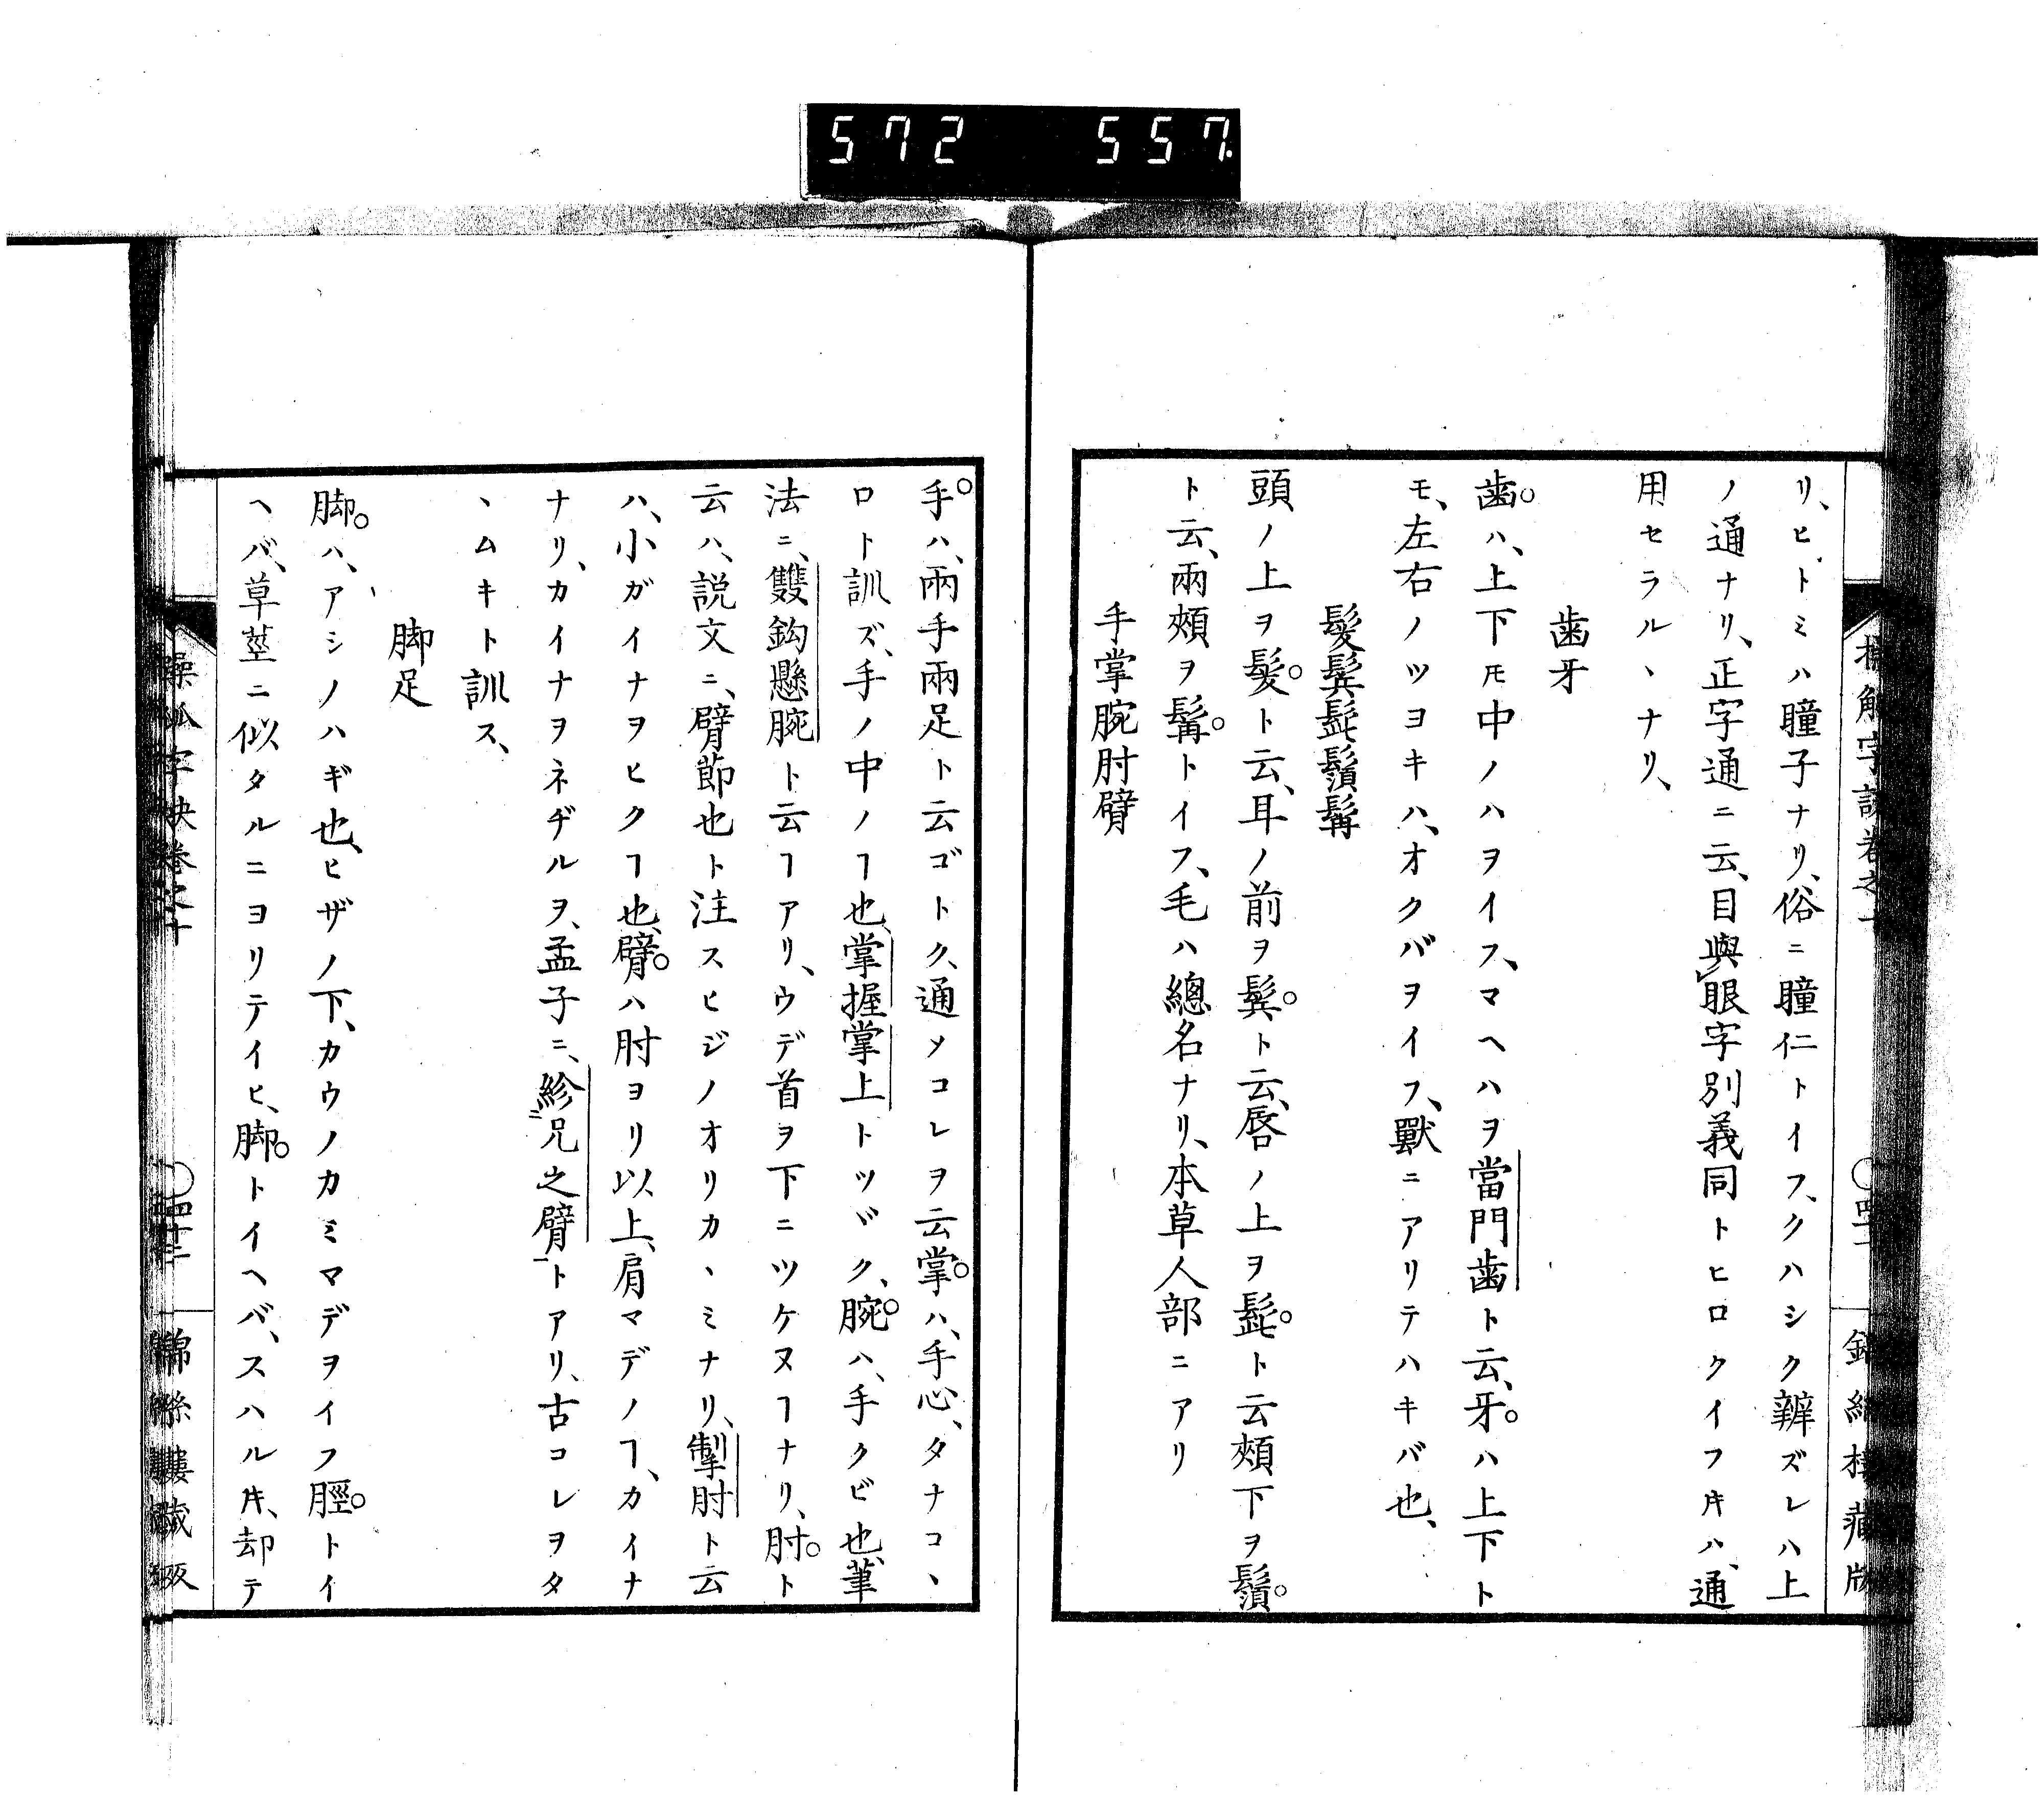 572 557
リ、ヒトミハ瞳子ナリ、俗ニ瞳仁トイフ、クハシク辨ズレハ上
ノ通ナリ、正字通ニ云、目與眼字別義同トヒロクイフ𪜈ハ、通
用セラルヽナリ、
歯牙
歯。ハ、上下𪜈中ノハヲイフ、マヘハヲ當門歯ト云、牙。ハ上下ト
モ、左右ノツヨキハ、オクバヲイフ、獸ニアリテハキバ也、
髮鬂髭鬚髯
頭ノ上ヲ髮。ト云、耳ノ前ヲ鬂。ト云、唇ノ上ヲ髭。ト云頰下ヲ鬚。
ト云、兩頰ヲ髯。トイフ、毛ハ總名ナリ、本草人部ニアリ
手掌腕肘臂
手。ハ、兩手兩足ト云ゴトク、通メコレヲ云掌。ハ、手心、タナコヽ
ロト訓ズ、手ノ中ノヿ也、掌握掌上トツヾク、腕。ハ、手クビ也、筆
法ニ、雙鈎懸腕ト云ヿアリ、ウデ首ヲ下ニツケヌヿナリ、肘。ト
云ハ、説文ニ、臂節也ト注スヒジノオリカヽミナリ、掣肘ト云
ハ、小ガイナヲヒクヿ也、臂。ハ肘ヨリ以上、肩マデノヿ、カイナ
ナリ、カイナヲネヂルヲ、孟子ニ、紾兄之臂トアリ、古コレヲタ
ヽムキト訓ス、
脚足
脚。ハ、アシノハギ也、ヒザノ下、カウノカミマデヲイフ脛。トイ
ヘバ、草莖ニ似タルニヨリテイヒ、脚。トイヘバ、スハル𪜈、却テ
操觚字訣卷之十
〇四十二